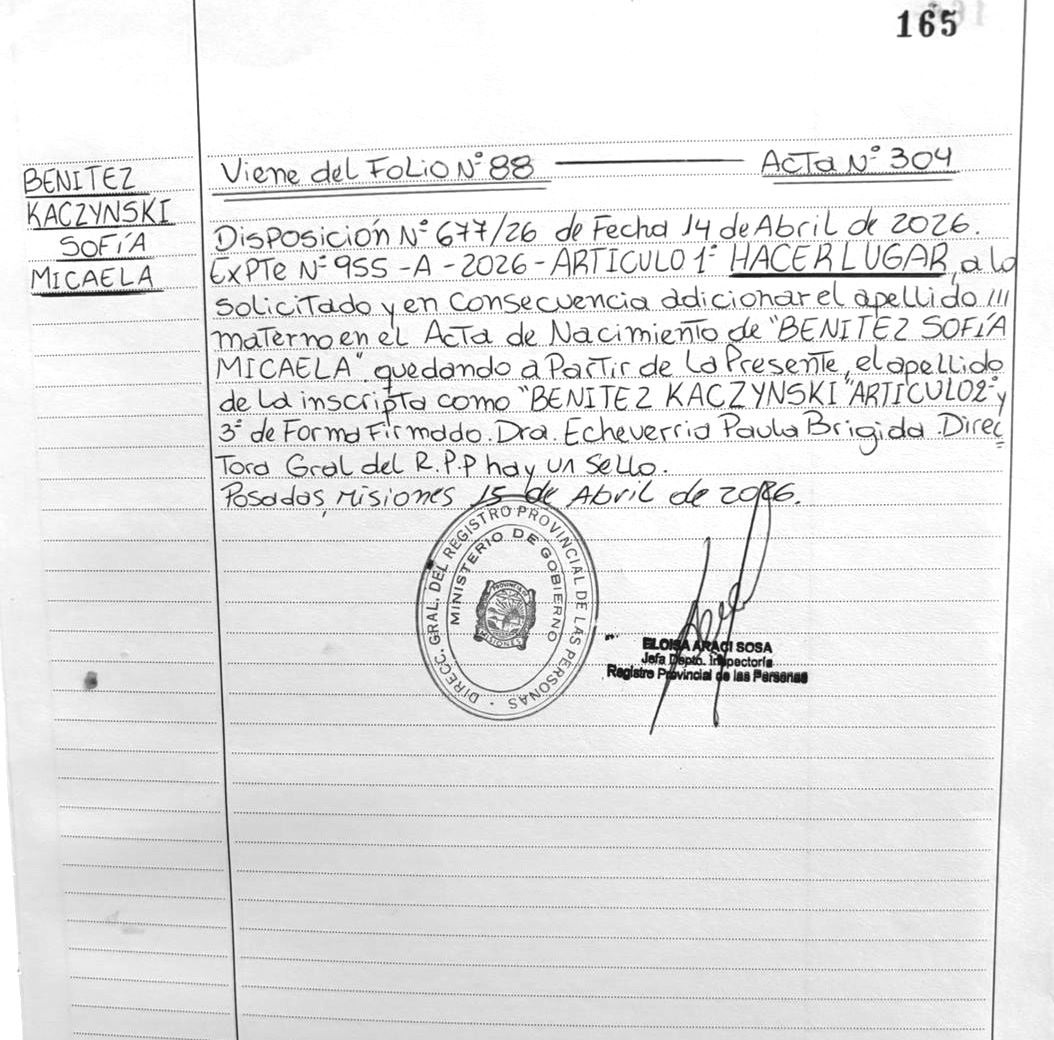 165
BENITEZ
KACZYNSKI
SOFÍA
MICAELA
Viene del Folio N° 88 ——— Acta N° 304
Disposición N° 677/26 de Fecha 14 de Abril de 2026.
Expte N° 955 - A - 2026 - ARTICULO 1° HACER LUGAR, a lo
solicitado y en consecuencia adicionar el apellido ///
materno en el Acta de Nacimiento de "BENITEZ SOFÍA
MICAELA" quedando a partir de la presente, el apellido
de la inscripta como "BENITEZ KACZYNSKI" ARTICULO 2° y
3° de Forma Firmado. Dra. Echeverria Paula Brigida. Direc
tora Gral del R.P.P hay un sello.
Posadas, Misiones 15 de Abril de 2026.
DIRECC. GRAL. DEL REGISTRO PROVINCIAL DE LAS PERSONAS
MINISTERIO DE GOBIERNO
PROVINCIA DE
MISIONES
ELOISA ARACI SOSA
Jefa Depto. Inspectoría
Registro Provincial de las Personas